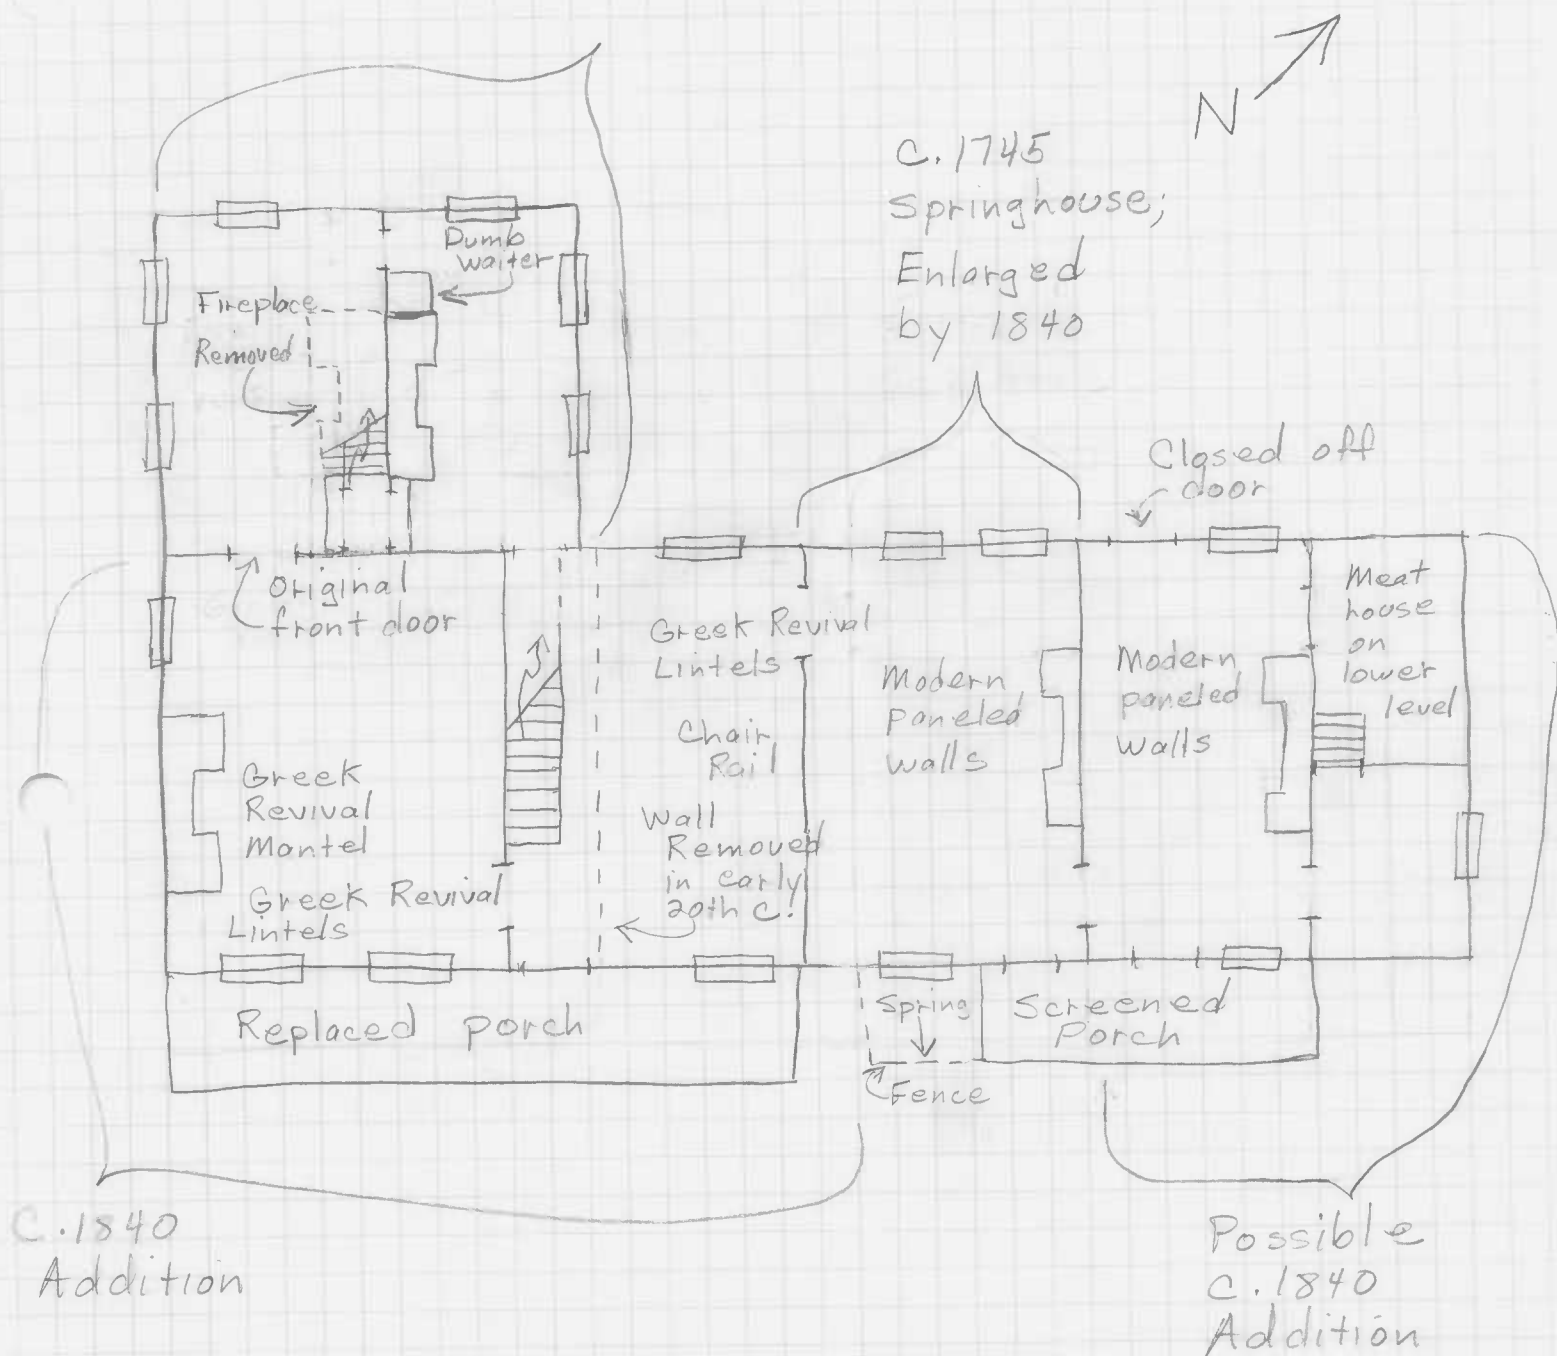 N
C. 1745
Springhouse;
Enlarged
by 1840
Dumb
waiter
Fireplace
Removed
Closed off
door
Original
front door
Greek Revival
Lintels
Chair
Rail
Modern
paneled
walls
Modern
paneled
walls
Meat
house
on
lower
level
Greek
Revival
Mantel
Greek Revival
Lintels
Wall
Removed
in early
20th C.
Replaced porch
Spring
Fence
Screened
Porch
C. 1840
Addition
Possible
C. 1840
Addition